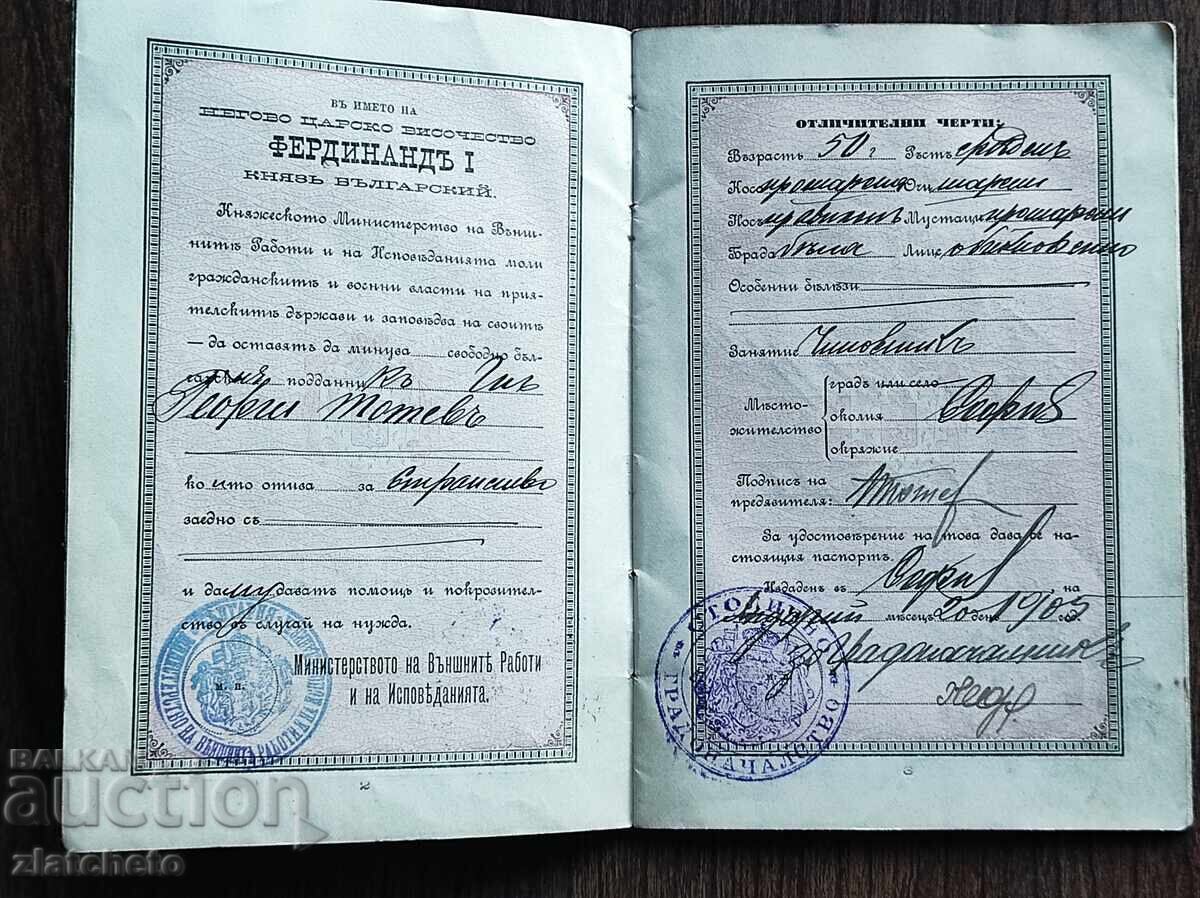 ВЪ ИМЕТО НА
НЕГОВО ЦАРСКО ВИСОЧЕСТВО
ФЕРДИНАНДЪ I
КНЯЗЬ БЪЛГАРСКИЙ.
Княжеското Министерство на Външ-
нитѣ Работи и на Исповѣданията моли
гражданскитѣ и военни власти на прия-
телскитѣ държави и заповѣдва на своитѣ
— да оставятъ да минува свободно бъл-
гарски подданникъ Г-нъ
Георги Тотевъ
който отива за Странство
заедно съ
и да му даватъ помощь и покровител-
ство въ случай на нужда.
Министерството на Външнитѣ Работи
и на Исповѣданията.
М. П.
2
ОТЛИЧИТЕЛНИ ЧЕРТИ:
Възрасть 50 г Ръстъ срѣденъ
Коси прошарени Очи шарени
Носъ правиленъ Мустаци прошарени
Брада бѣла Лице обикновенно
Особенни бѣлѣзи
Занятие Чиновникъ
Мѣсто-
жителство
градъ или село
околия София
окрѫжие
Подпись на
предявителя: Тотев
За удостовѣрение на това дава се на-
стоящия паспортъ.
Издаденъ въ София на
мѣсецъ 20 день 1905
Градоначалникъ
СТОЛИЧНО ГРАДОНАЧАЛСТВО
3
BALKAN
auction
zlatcheto